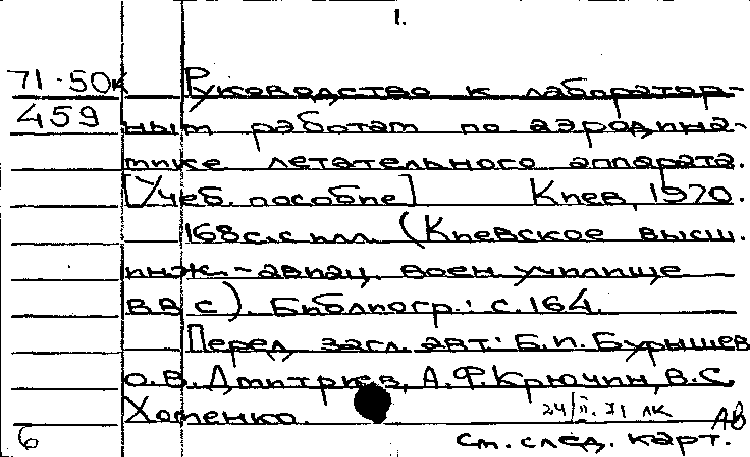 I.
71-50к Руководство к лаборатор-
459 ным работам по аэродина-
мике летательного аппарата.
[Учеб. пособие] Киев, 1970.
168 с. с илл. (Киевское высш.
инж.-авиац. воен. училище
ВВС). Библиогр.: с. 164.
Перед загл. авт.: Б.П. Бурышев
О.В. Дмитриев, А.Ф. Крючин, В.С.
Хоменко. 24/II.71 ЛК АВ
6 см. след. карт.